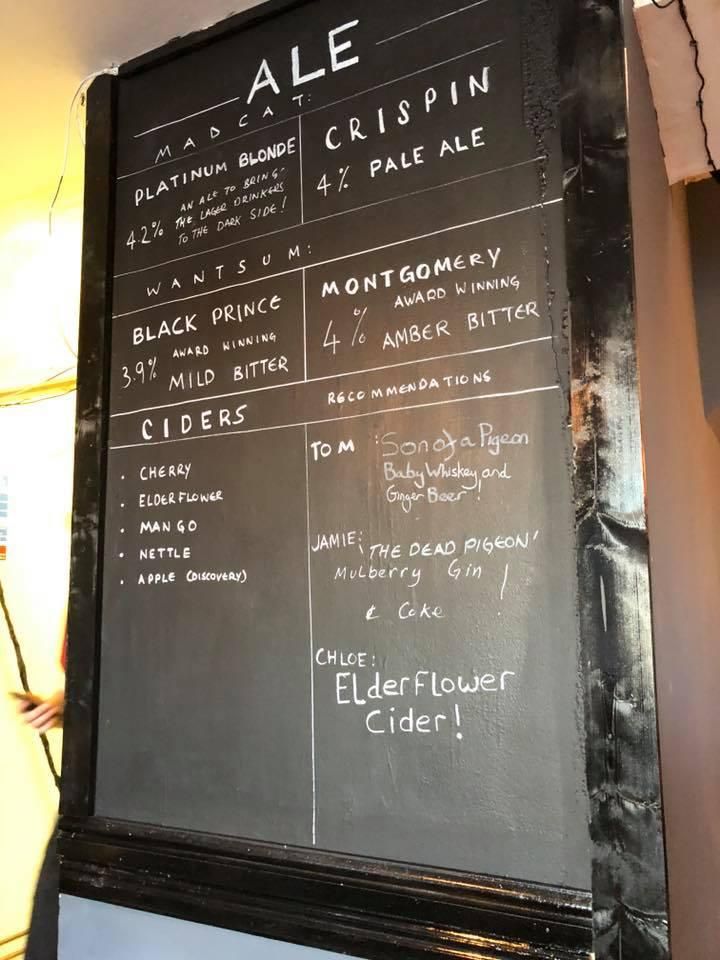 ALE
MADCAT:
PLATINUM BLONDE
4.2% AN ALE TO BRING
THE LAGER DRINKERS
TO THE DARK SIDE!
CRISPIN
4% PALE ALE
WANTSUM:
BLACK PRINCE
3.9% AWARD WINNING
MILD BITTER
MONTGOMERY
4% AWARD WINNING
AMBER BITTER
CIDERS
• CHERRY
• ELDERFLOWER
• MANGO
• NETTLE
• APPLE (DISCOVERY)
RECOMMENDATIONS
TOM : Son of a Pigeon
Baby Whiskey and
Ginger Beer!
JAMIE: 'THE DEAD PIGEON'
Mulberry Gin
& Coke !
CHLOE:
ELderFlower
Cider!